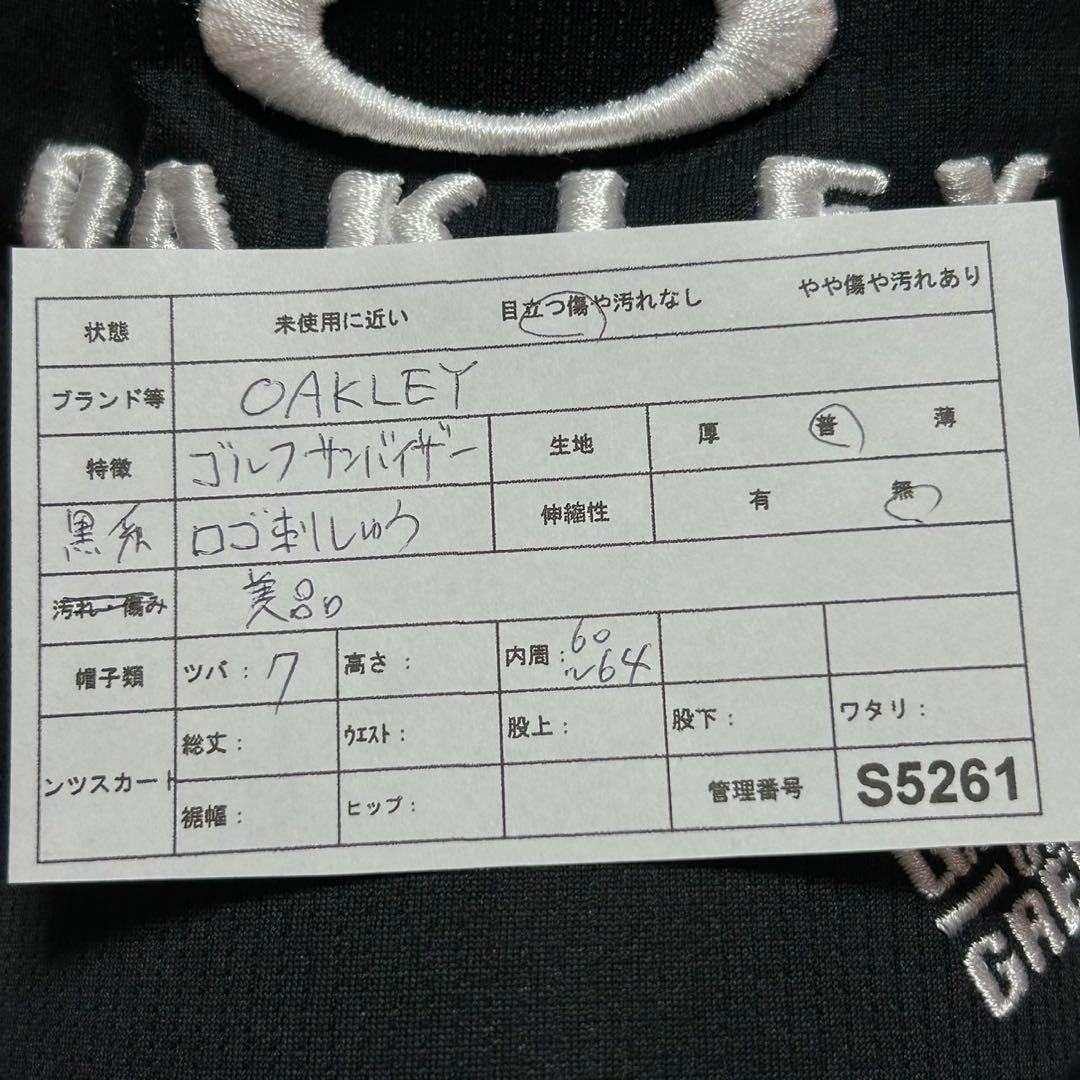 OAKLEY
状態 未使用に近い 目立つ傷や汚れなし やや傷や汚れあり
ブランド等 OAKLEY
特徴 ゴルフサンバイザー 生地 厚 普 薄
黒系 ロゴ刺しゅう 伸縮性 有 無
汚れ・傷み 美品
帽子類 ツバ：7 高さ： 内周：60～64
ンツスカート 総丈： ウエスト： 股上： 股下： ワタリ：
裾幅： ヒップ： 管理番号 S5261